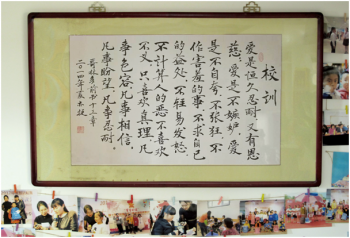 校训
爱是恒久忍耐又有恩
慈、爱是不嫉妒、爱
是不自夸、不张狂、不
作害羞的事、不求自己
的益处、不轻易发怒、
不计算人的恶、不喜欢
不义、只喜欢真理、凡
事包容、凡事相信、
凡事盼望、凡事忍耐
哥林多前书十三章
二〇一四年夏